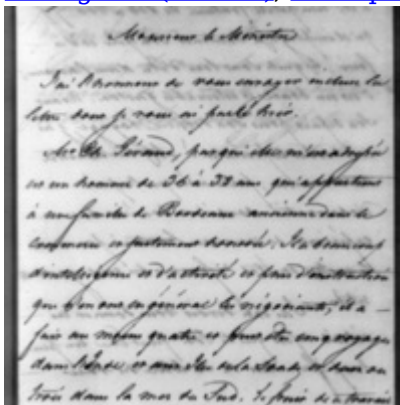 Monsieur le Ministre
J'ai l'honneur de vous envoyer incluse la
lettre dont je vous ai parlé hier.
Mr Ch. Géraud, par qui elle m'est adressée
est un homme de 36 à 38 ans qui appartient
à une famille de Bordeaux ancienne dans le
commerce et justement honorée. Il a beaucoup
d'intelligence et d'activité et plus d'instruction
que n'en ont en général les négociants, il a
fait au moins quatre et peut-être cinq voyages
dans l'Inde, et aux Iles de la Sonde, et deux ou
trois dans la mer du Sud. Le fruit de